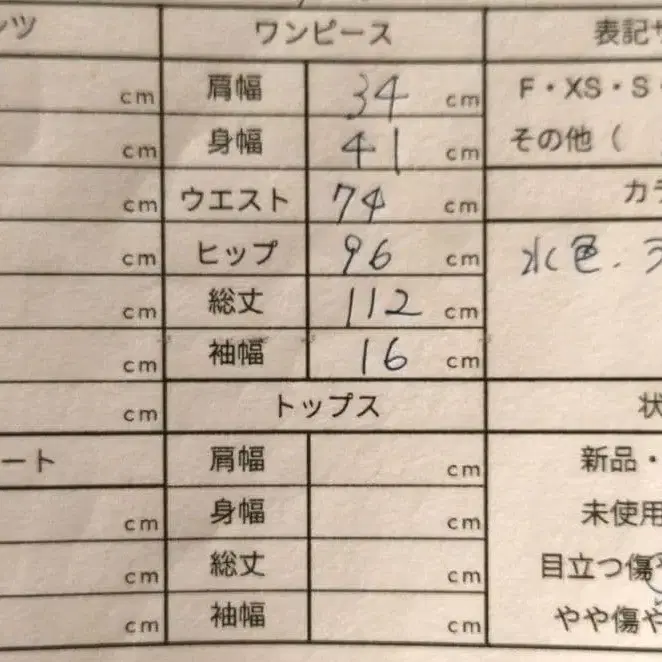 ンツ ワンピース 表記サ
cm 肩幅 34 cm F・XS・S・
cm 身幅 41 cm その他（
cm ウエスト 74 cm カラ
cm ヒップ 96 cm 水色.
cm 総丈 112 cm
cm 袖幅 16 cm
cm トップス 状
ート 肩幅 cm 新品・
cm 身幅 cm 未使用
cm 総丈 cm 目立つ傷や
cm 袖幅 cm やや傷や